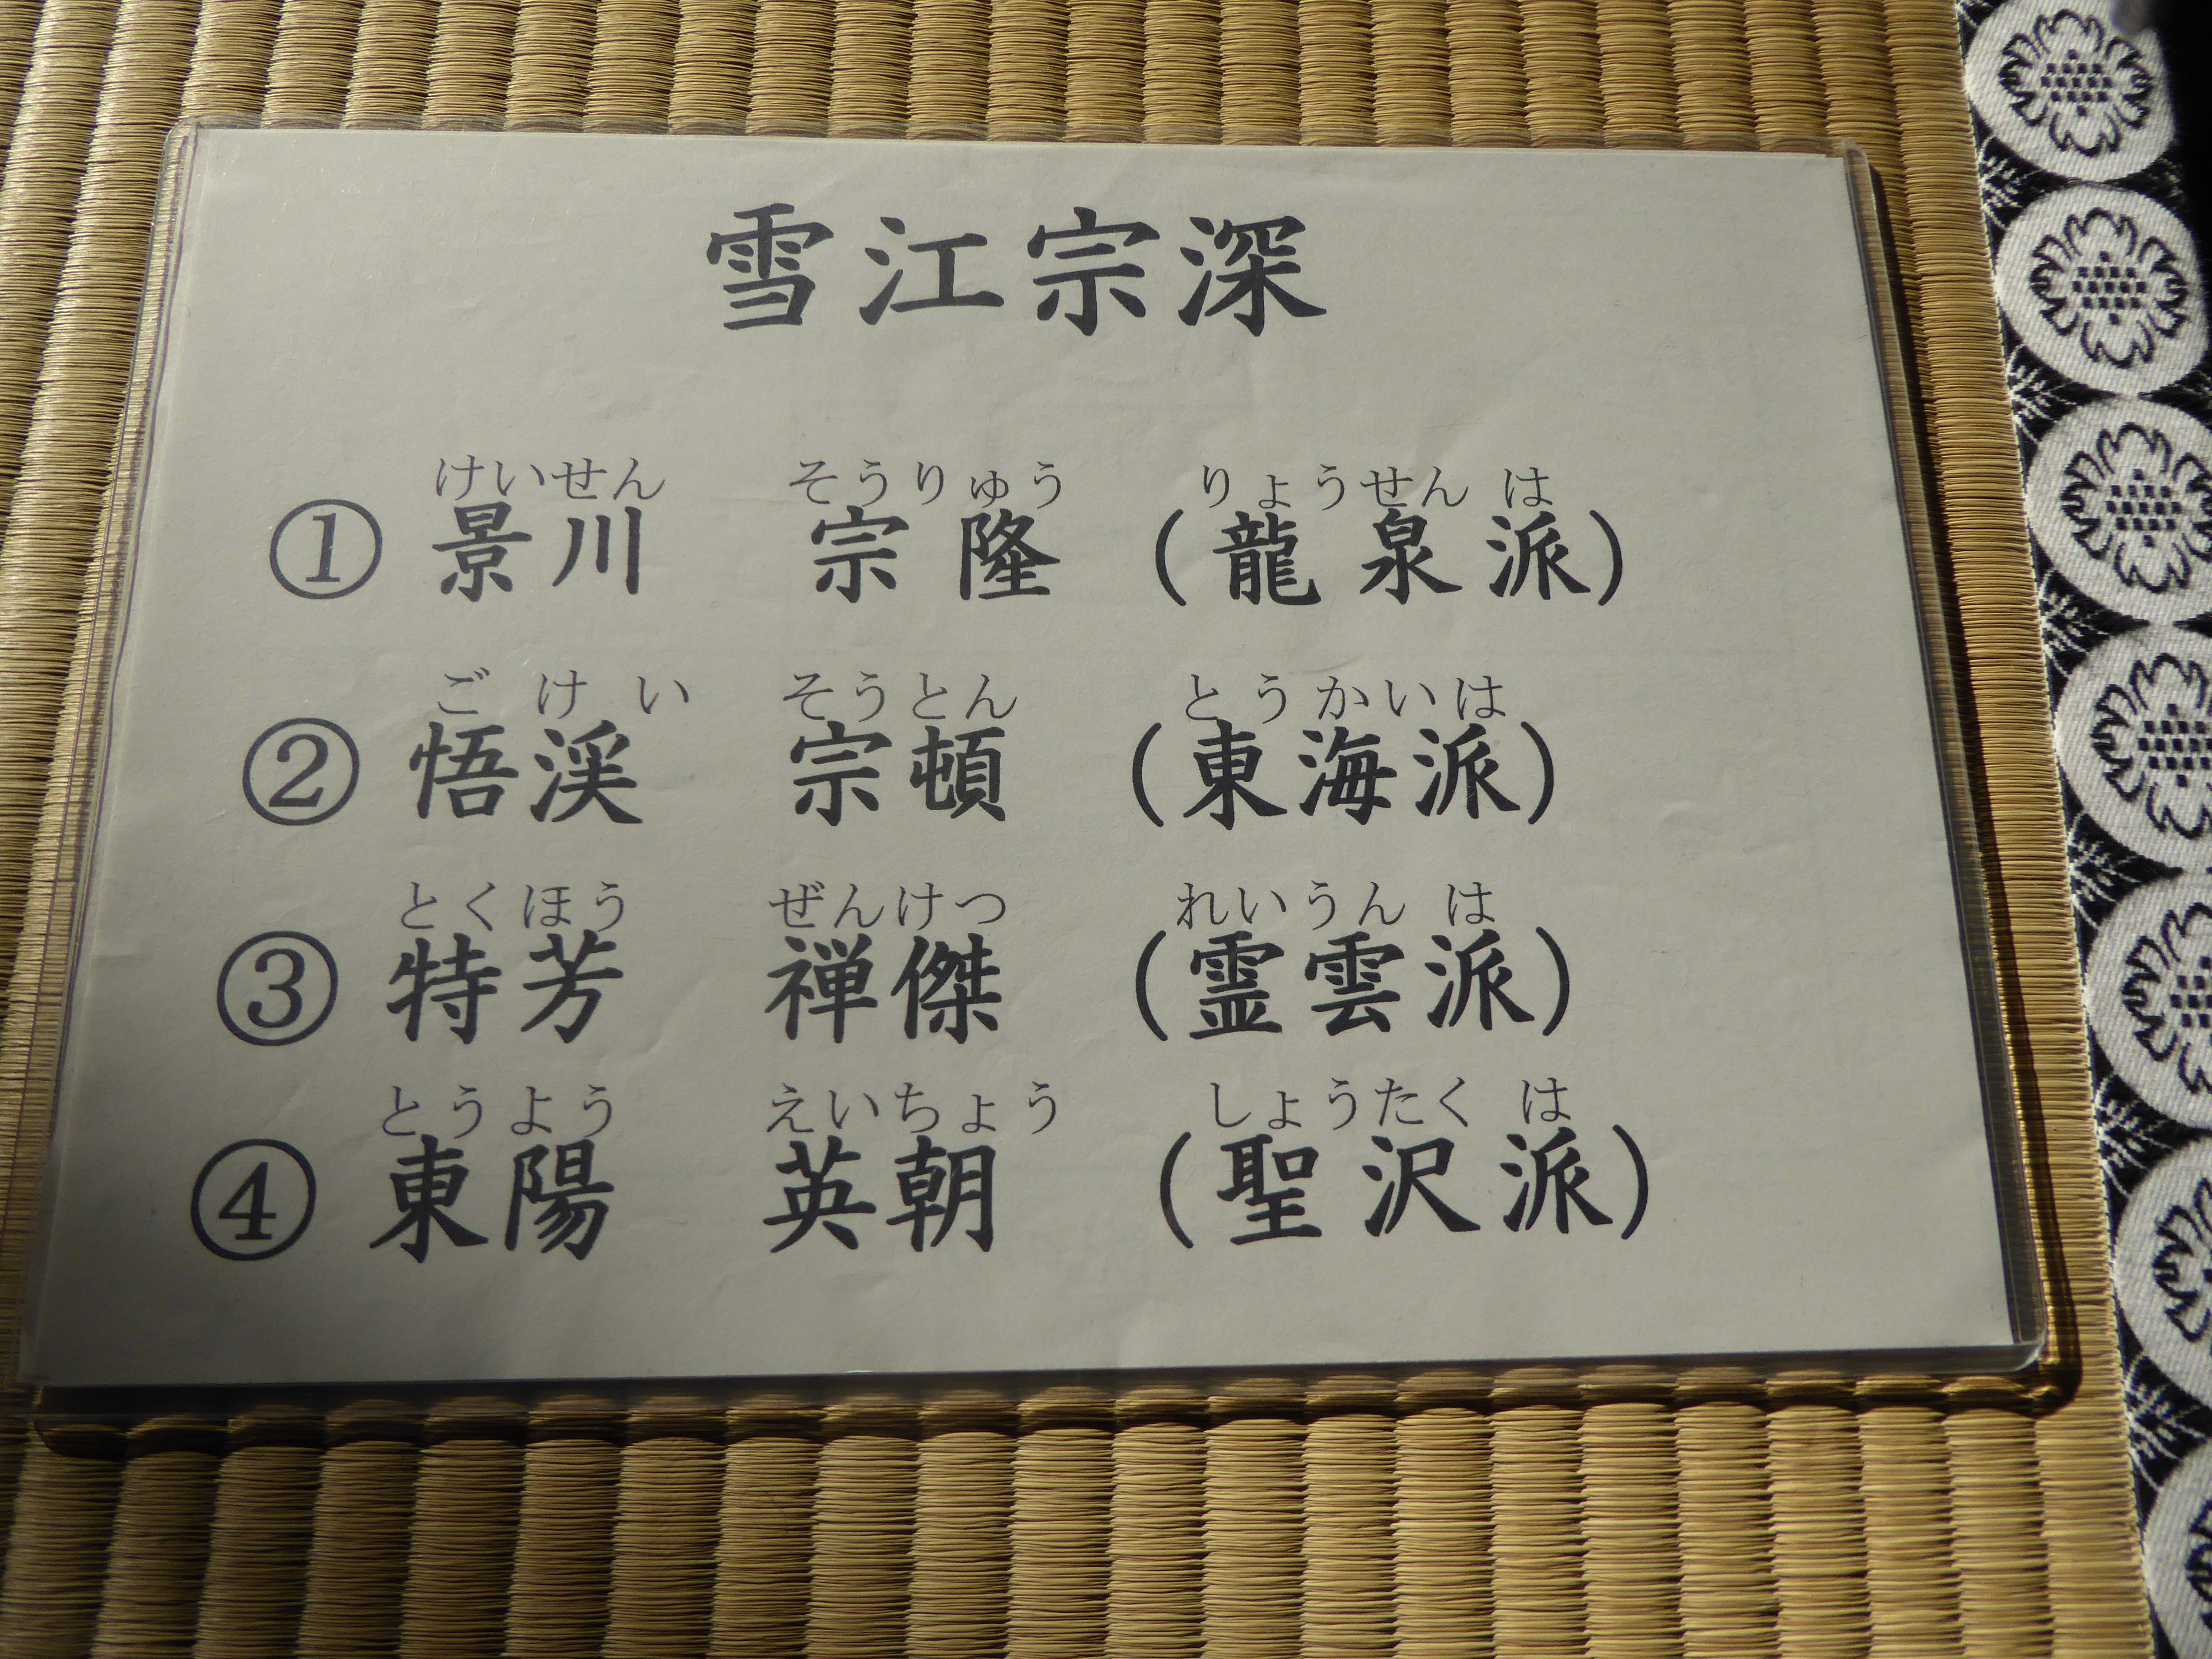 雪江宗深
けいせん そうりゅう りょうせん は
① 景川 宗隆 (龍泉派)
ごけい そうとん とうかいは
② 悟渓 宗頓 (東海派)
とくほう ぜんけつ れいうん は
③ 特芳 禅傑 (霊雲派)
とうよう えいちょう しょうたく は
④ 東陽 英朝 (聖沢派)